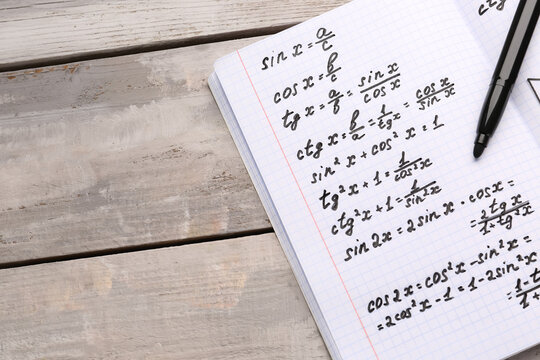 ctg
sin x = a/c
cos x = b/c
tg x = a/b = sin x/cos x
ctg x = b/a = 1/tg x = cos x/sin x
sin² x + cos² x = 1
tg² x + 1 = 1/cos² x
ctg² x + 1 = 1/sin² x
sin 2x = 2 sin x · cos x =
= 2 tg x/1 + tg² x
cos 2x = cos² x - sin² x =
= 2 cos² x - 1 = 1 - 2 sin² x
= 1 - t/1 +